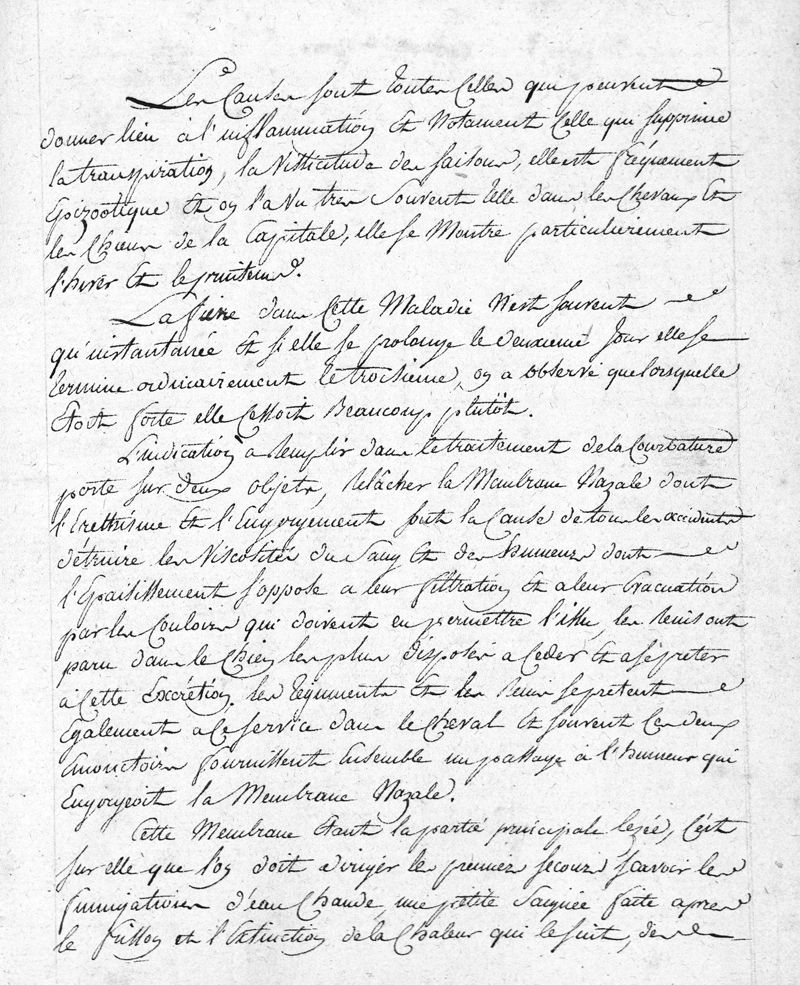 Les Causes sont toutes Celles qui peuvent
donner lieu à l'inflammation et Notament Celle qui supprime
la transpiration, la Vissicitude des saisons, elle est fréquement
Epizootique et on l'a Vu tres Souvent telle dans les Chevaux Et
les Chiens de la Capitale, elle se Montre particulierement
l'hiver Et le printems.
La fievre dans Cette Maladie N'est souvent
qu'instantanée Et si elle se prolonge le deuxieme Jour elle se
termine ordinairement le troisieme, on a observé que lorsquelle
Etoit forte elle Cessoit Beaucoup plutôt.
L'indication a Remplir dans le traitement de la Courbature
porte sur deux objets, relâcher la Membrane Nazale dont
l'Erethisme Et l'Engorgement font la Cause de tous les accidents
détruire les Viscosités du Sang Et des humeurs dont
l'Epaississement s'oppose a leur filtration Et a leur Evacuation
par les Couloirs qui doivent en permettre l'issu, les Reins ont
paru dans le Chien les plus disposés a Ceder Et a se préter
à Cette Excrétion. les teguments Et les Reins se prétent
Egalement a Ce service dans le Cheval Et souvent Ces deux
Emonctoires fournissent Ensemble un passage à l'humeur qui
Engorgeoit la Membrane Nazale.
Cette Membrane Etant la partie principale lezée, C'est
sur elle que l'on doit diriger les premiers secours scavoir les
fumigations d'eau Chaude, une petite Saignée faite apres
le frisson et l'Extinction de la Chaleur qui le suit, des